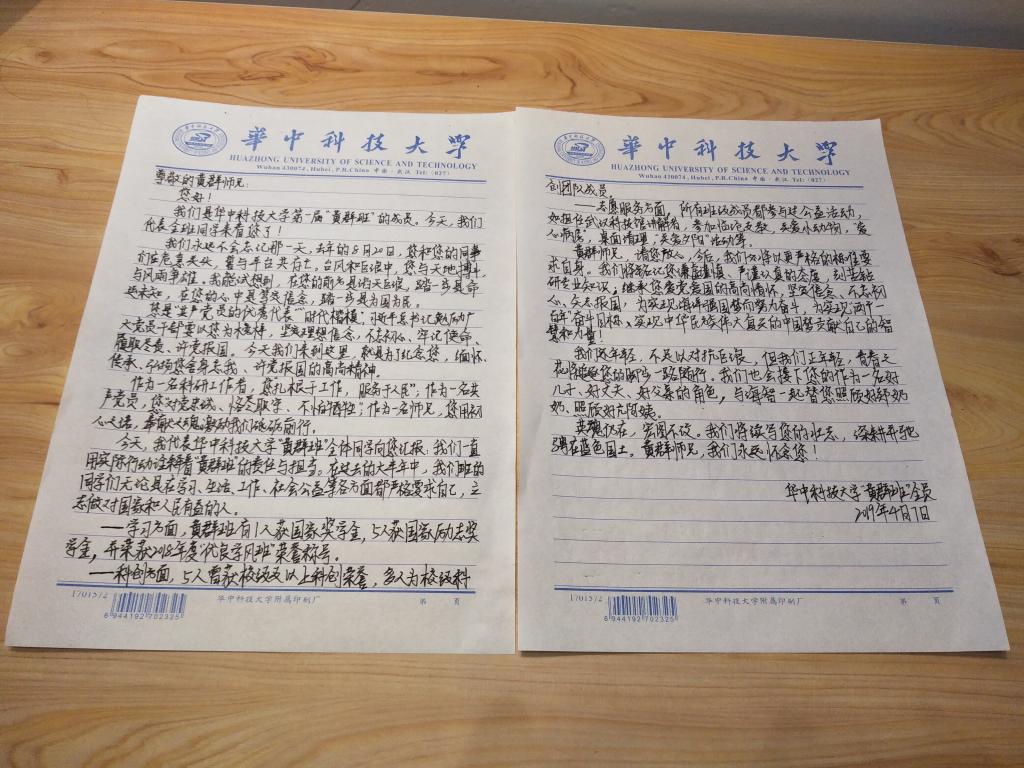 華中科技大学
HUAZHONG UNIVERSITY OF SCIENCE AND TECHNOLOGY
Wuhan 430074, Hubei, P.R.China 中国·武汉 Tel:(027)
尊敬的黄群师兄:
您好!
我们是华中科技大学第一届"黄群班"的成员。今天,我们
代表全班同学来看您了!
我们永远不会忘记那一天,去年的8月20日,您和您的同事
们在危急关头,誓与平台共存亡。台风和巨浪中,您与天地搏斗,
与风雨争雄。我能试想到,在您的前方是滔天巨浪,踏一步是命
运未知,在您的心中是坚定信念,踏一步是为国为民。
您是"共产党员的优秀代表""时代楷模",习近平总书记勉励广
大党员干部要以您为榜样,坚定理想信念,不忘初心、牢记使命、
履职尽责、许党报国。今天我们来到这里,就是为了纪念您,缅怀
传承、弘扬您舍身忘我、许党报国的高尚精神。
作为一名科研工作者,您扎根于工作,服务于人民";作为一名共
产党员,您对党忠诚、恪尽职守、不怕牺牲;作为一名师兄,您用初
心火炬,激励我们砥砺前行。
今天,我代表华中科技大学"黄群班"全体同学向您汇报:我们一直
用实际行动诠释着"黄群班"的责任与担当。在过去的大半年中,我们班的
同学们无论是在学习、生活、工作、社会公益等各方面都严格要求自己,立
志做对国家和人民有益的人。
——学习方面,黄群班有1人获国家奖学金,5人获国家励志奖
学金,并荣获2018年度"优良学风班"荣誉称号。
——科创方面,5人曾获校级及以上科创荣誉,多人为校级科
1701572
6 944192 702325
华中科技大学附属印刷厂
第 页
華中科技大学
HUAZHONG UNIVERSITY OF SCIENCE AND TECHNOLOGY
Wuhan 430074, Hubei, P.R.China 中国·武汉 Tel:(027)
创团队成员。
——志愿服务方面,所有班级成员都参与过公益活动,
如担任武汉科技馆讲解者,参加临沧支教,关爱小动物,"爱
心病房",桌面清理,"关爱夕阳"活动等。
黄群师兄,请您放心,今后,我们必将以更严格的标准要
求自身。我们将铭记您谦虚谨慎,严谨认真的态度,刻苦钻
研专业知识,继承您爱党爱国的高尚情怀,坚定信念,不忘初
心,矢志报国,为实现海洋强国梦而努力奋斗,为实现"两个一
百年"奋斗目标、实现中华民族伟大复兴的中国梦贡献自己的智
慧和力量!
我们还年轻,不足以对抗巨浪,但我们正年轻,青春无
花将追逐您的脚步一路随行。我们也会接下您的作为一名好
儿子、好丈夫、好父亲的角色,与海智一起替您照顾好奶
奶,照顾好亢阿姨。
英魂仍在,宏图不改。我们将续写您的壮志,深耕并驰
骋在蓝色国土。黄群师兄,我们永远怀念您!
华中科技大学"黄群班"全员
2019年4月7日
1701572
6 944192 702325
华中科技大学附属印刷厂
第 页